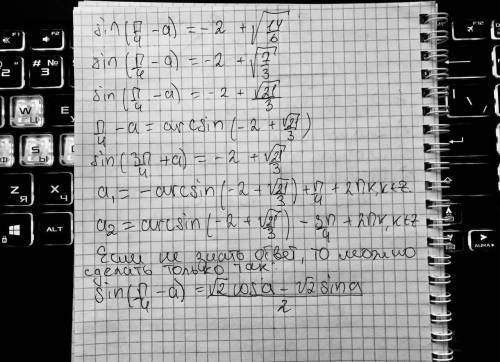 sin(π/4 - a) = -2 + √(14/6)
sin(π/4 - a) = -2 + √(7/3)
sin(π/4 - a) = -2 + √21/3
π/4 - a = arcsin(-2 + √21/3)
sin(3π/4 + a) = -2 + √21/3
a₁ = -arcsin(-2 + √21/3) + π/4 + 2πk, k∈Z
a₂ = arcsin(-2 + √21/3) - 3π/4 + 2πk, k∈Z
Если не знать ответ, то можно
сделать только так:
sin(π/4 - a) = (√2 cosa - √2 sina)/2
W
Z
Я
X
Ч
ALT
ALT